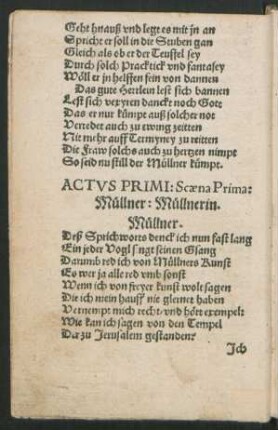 Geht hnauß vnd legt es mit jn an
Spricht er soll in die Stuben gan
Gleich als ob er der Teuffel sey
Durch solch Practick vnd fantasey
Wöll er jn helffen fein von dannen
Das gute Herrlein lest sich bannen
Lest sich vexyren dancke noch Gott
Das er nur kümpt auß solcher not
Verredet auch zu ewing zeitten
Nit mehr auff Termyney zu reitten
Die Fraw solchs auch zu hertzen nimpt
So seid nu still der Müllner kümpt.
ACTVS PRIMI: Scæna Prima:
Müllner: Müllnerin.
Müllner.
Deß Sprichworts denck ich nun fast lang
Ein jeder Vogl singt seinen Gsang
Darumb red ich von Müllners Kunst
Es wer ja alle red vmb sonst
Wenn ich von freyer kunst wolt sagen
Die ich mein hauff nie glernet haben
Vernempt mich recht/ vnd hört exempel:
Wie kan ich sagen von den Tempel
Der zu Jerusalem gestanden?
Jch